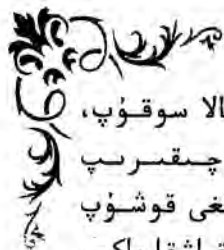 الا سوقۇپ،
چىقىرىپ
ىغى قوشۇپ